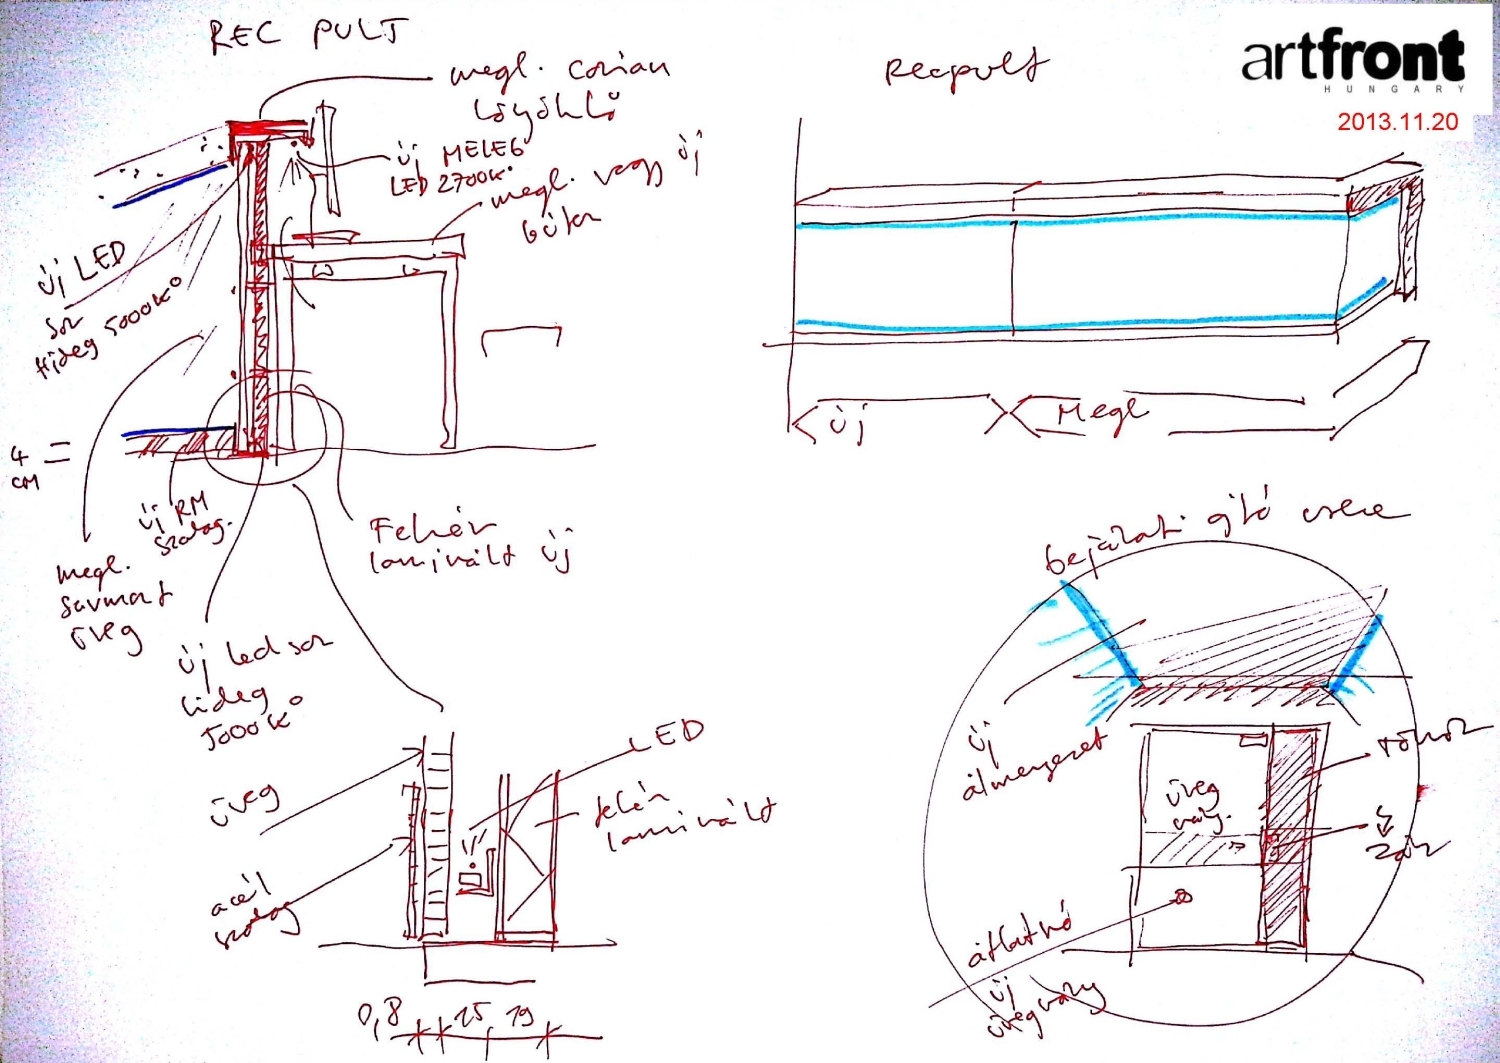 REC PULT
megl. corian
új MELEG
LED 2700K°
megl. vagy új
bútor
új LED
sor
Hideg 5000K°
4
CM
új RM
szalag.
megl.
savmart
üveg
Fehér
laminált új
új led sor
hideg
5000K°
üveg
acél
szalag
LED
fehér
laminált
0,8
25
19
Recpult
artfront
HUNGARY
2013.11.20
új
Megl
bejárati ajtó csere
új
átmenezet
üveg
zár
átlátszó
új